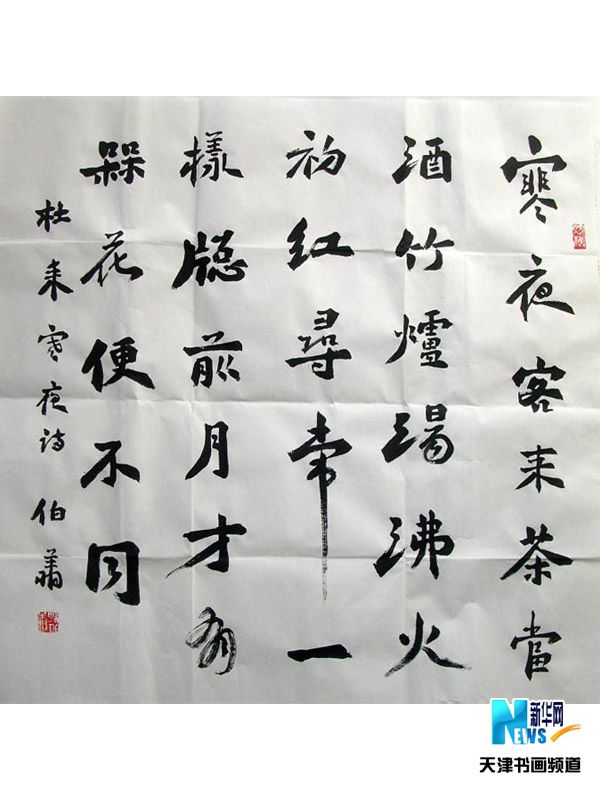 寒夜客来茶當
酒竹爐湯沸火
初红尋常一
樣窗前月才有
槑花便不同
杜来寒夜诗 伯萧
新华网
NEWS
天津书画频道